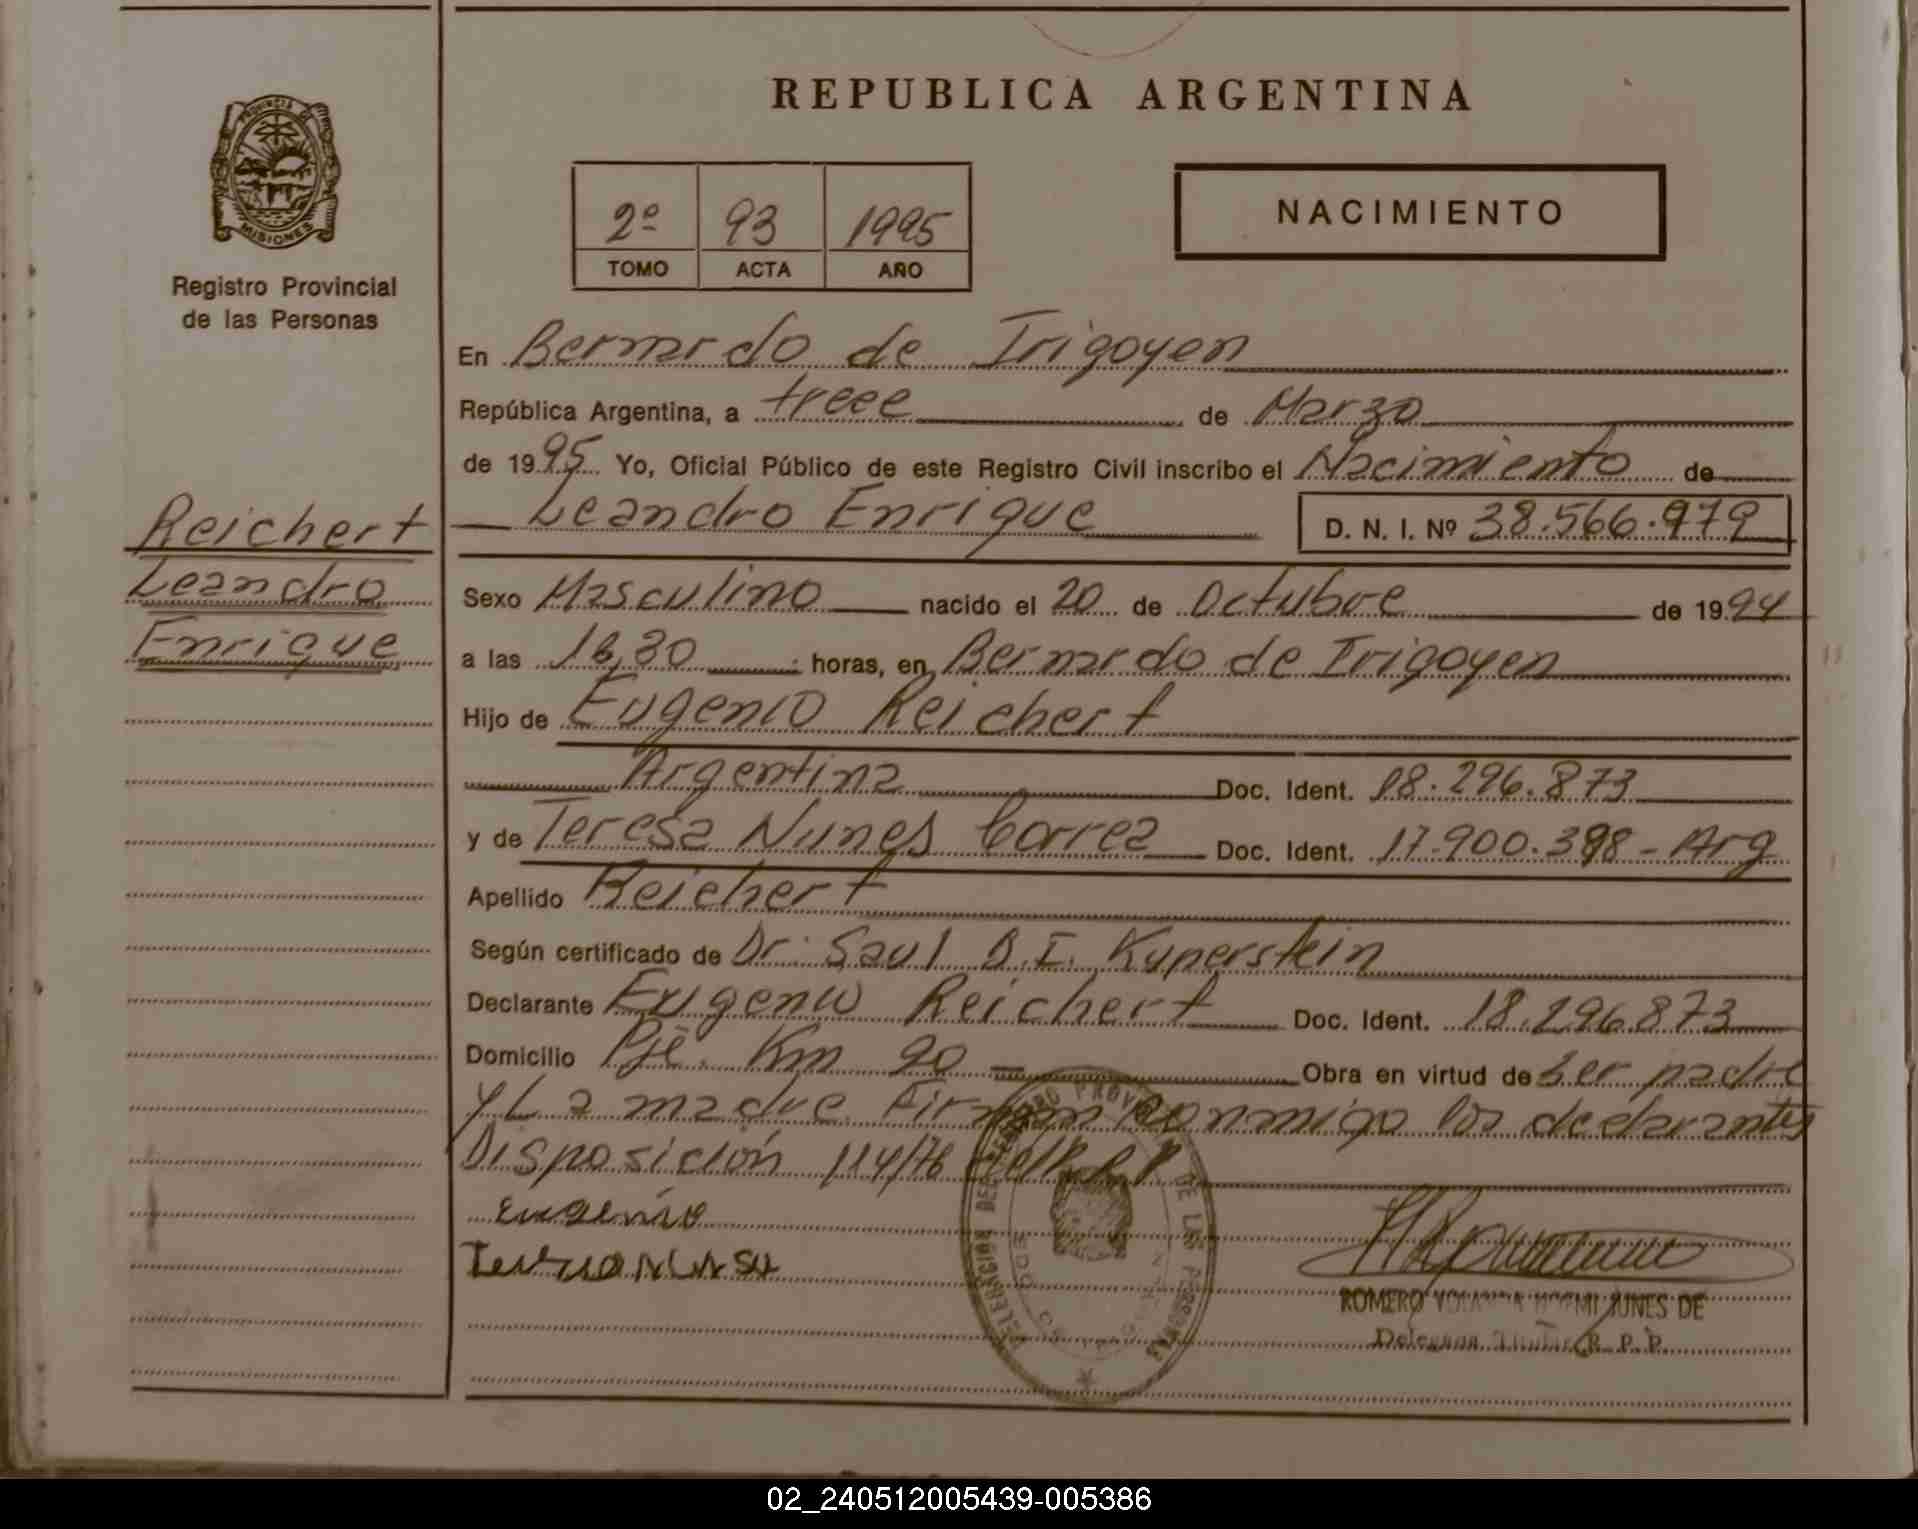 REPUBLICA ARGENTINA
PROVINCIA DE
MISIONES
Registro Provincial
de las Personas
2º 93 1995
TOMO ACTA AÑO
NACIMIENTO
En Bernardo de Irigoyen
República Argentina, a trece de Marzo
de 1995 Yo, Oficial Público de este Registro Civil inscribo el Nacimiento de
Reichert
Leandro
Enrique
Leandro Enrique D. N. I. Nº 38.566.979
Sexo Masculino nacido el 20 de Octubre de 1994
a las 16,30 horas, en Bernardo de Irigoyen
Hijo de Eugenio Reichert
Argentina Doc. Ident. 18.296.873
y de Teresa Nunes Correa Doc. Ident. 17.900.398 - Arg
Apellido Reichert
Según certificado de Dr. Saul B.I. Kuperstein
Declarante Eugenio Reichert Doc. Ident. 18.296873
Domicilio Pje. Km 90 Obra en virtud de ser padre
y La madre. Firman conmigo los declarantes
Disposición 114/76 del R.P.P.
Eugenio
DELEGACION DEL REGISTRO PROVINCIAL DE LAS PERSONAS
ROMERO YOLANDA NOEMI JUNES DE
Delegada Titular R. P. P.
02_240512005439-005386